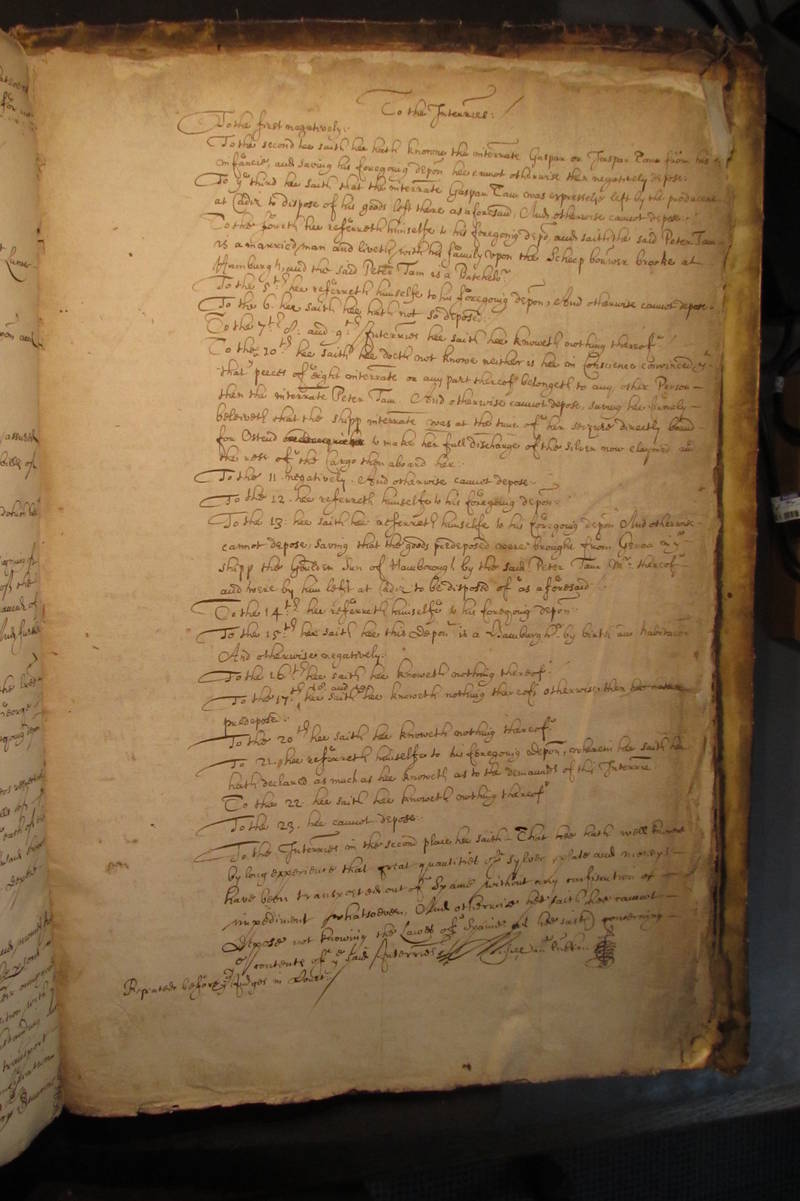 To the Interries:
To the first negatively.
To the second hee saith hee hath knowne the interrate Gaspar or Jaspar Tam from his
infancie, and saving his foregoing depon hee cannot otherwise then negatively depose.
To ye third hee saith that the interrate Gaspar Tam was expressely left by the producent
at Cadiz to dispose of his goods left there as aforesaid, And otherwise cannot depose.
To the fourth hee referreth himselfe to his foregoing depon, and saith the said Peter Tam
is a married man and liveth with his family upon the Scheep brooke at
Hamburgh, and the said Peter Tam is a Batchelr.
To the 5th hee referreth himselfe to his foregoing depon, And otherwise cannot depose.
To the 6. hee saith hee hath not so deposed.
To the 7th 8. and 9th Interries hee saith hee knoweth nothing thereof.
To the 10th hee saith hee doth not knowe neither is hee in Conscience convinced, yt
that peeces of eight interrate or any part thereof belongeth to any other Person
then the interrate Peter Tam. And otherwise cannot depose, saving hee firmely
beleiveth that the shipp interrate was at the time of her seizure directly bound
for Ostend to make her full discharge of the silver now claymed and
the rest of the Cargo then aboard her.
To the 11. negatively. And otherwise cannot depose.
To the 12. hee referreth himselfe to his foregoing depon.
To the 13. hee saith hee referreth himselfe to his foregoing depon And otherwise
cannot depose, saving that the goods predeposed were brought from Genoa in ye
shipp the Goulden Sun of Hambrough by the said Peter Tam Mr. thereof
and were by him left at Cadiz to be disposed of as aforesaid.
To the 14th hee referreth himselfe to his foregoing depon.
To the 15th hee saith hee this Depont is a Hamburghr. by birth and habitation
And otherwise negatively.
To the 16th hee saith hee knoweth nothing thereof.
To the 17th 18. and 19. hee saith hee knoweth nothing thereof otherwise then
predeposed.
To the 20th hee saith hee knoweth nothing thereof
To 21. hee referreth himselfe to his foregoing depon, wherein hee saith hee
hath declared as much as hee knoweth as to the demaunds of this Interrie
To the 22. hee saith hee knoweth nothing thereof
To the 23. hee cannot depose.
To the Interries in the second place hee saith That hee hath well knowne
by long experience that great quantities of sylver plate and moneys
have been transported out of Spaine without any confiscation or
impediment whatsoever, And otherwise hee saith hee cannot
depose not knowing the Lawes of Spaine (as hee saith) concerning
ye contents of ye said Interries.
Repeated before ye Judges in Court.